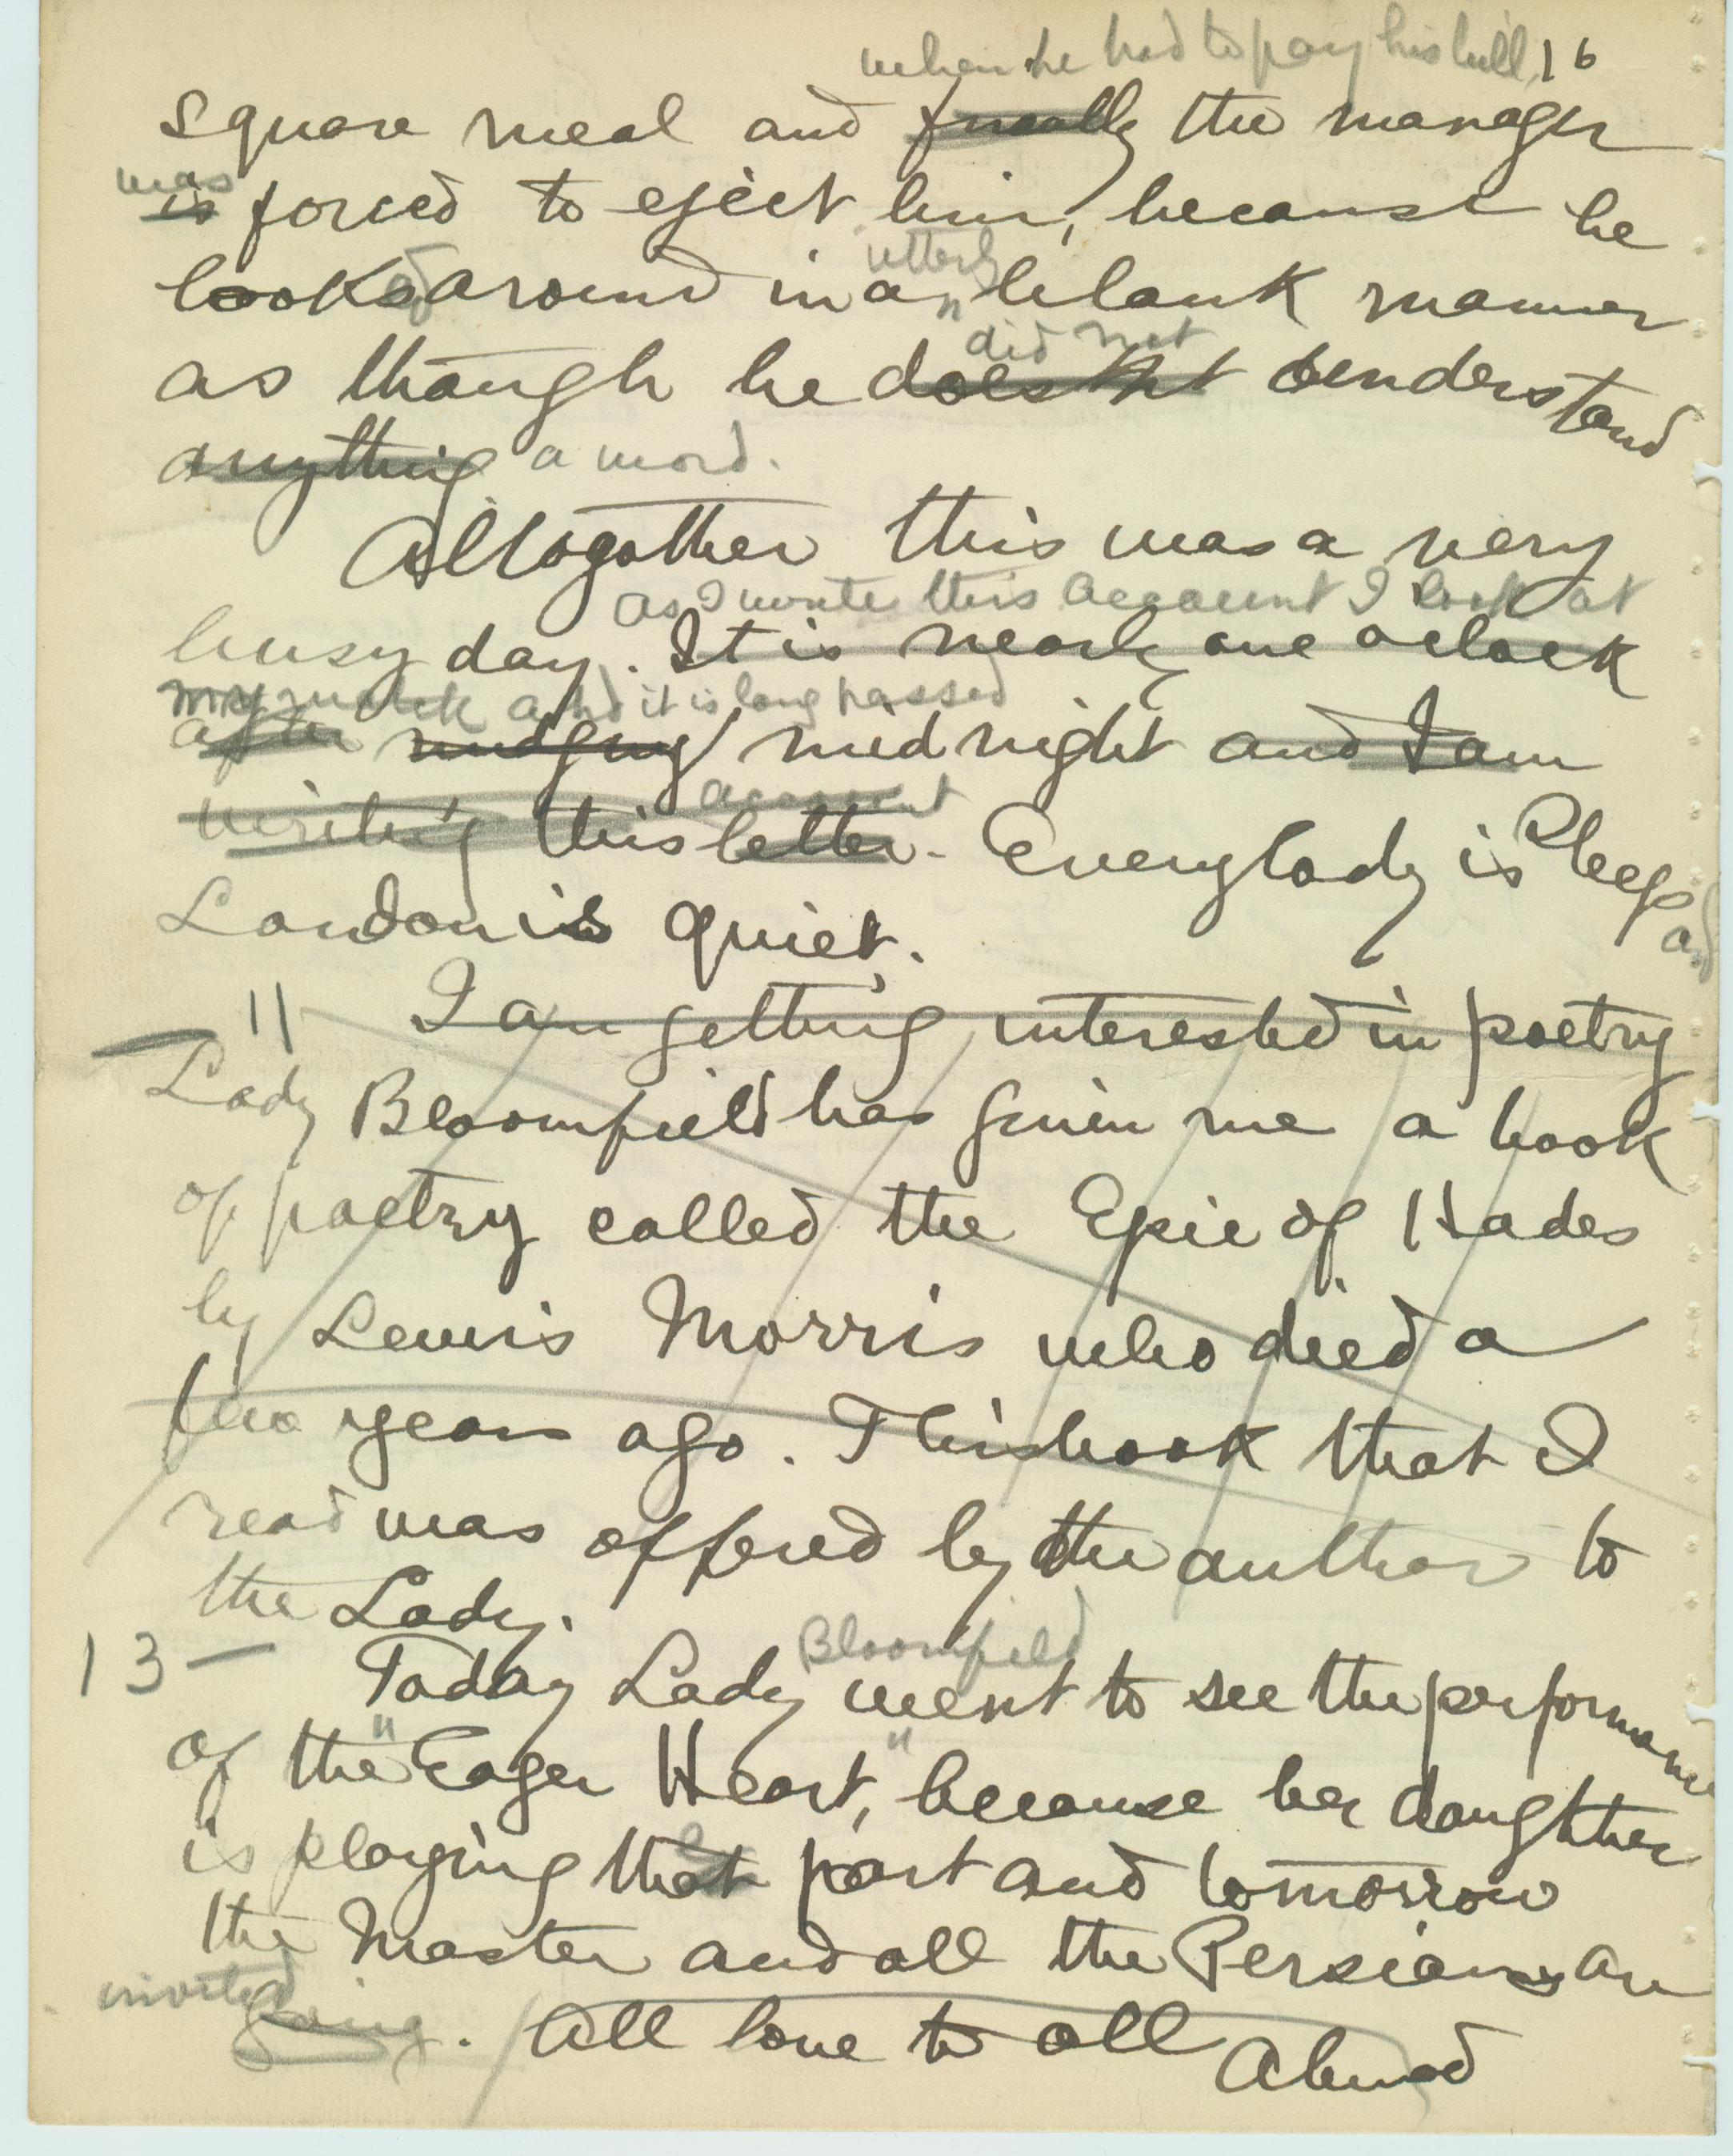 when he had to pay his bill, 16
square meal and finally the manager
was
is forced to eject him, because he
utterly
looksed around in an blank manner
did not
as though he doesn't understand
anything a word.
Altogather this was a very
as I write this account I look at
busy day. It is nearly one oclock
my watch and it is long passed
after midnight and I am
account
writing this letter. Everybody is sleep and
London is quiet.
11 I am getting interested in poetry
Lady Bloomfield has given me a book
of poetry called the Epic of Hades
by Lewis Morris who died a
few years ago. This book that I
read was offered by the author to
the Lady.
13 — Bloomfield
Today Lady went to see the performance
of the "Eager Heart", because her daughter
is playing that part and tomorrow
the Master and all the Persians are
invited
going. All love to all Ahmad